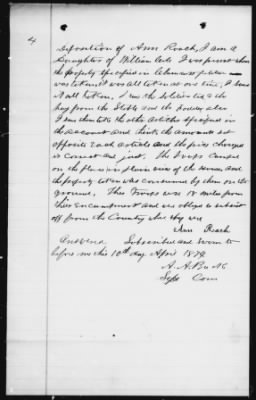 4
Deposition of Ann Roach, I am a
Daughter of William I was present when
the property specified in claimants petition
was taken it was all taken at one time, I saw
it all taken, I saw the Soldiers take the
hay from the Stable and the fodder also
I saw them take the other articles specified in
the account and think the amounts set
opposite each article and the prices charged
is correct and just. The troops camped
on the place in plain view of the house and
the property taken was consumed by them on the
ground, This Forces was 18 miles from
their Encampment and was obliged to subsist
off from the Country as they
Ann Roach
Subscribed and sworn to
before me this 10th day April 1879
A. A.
Com